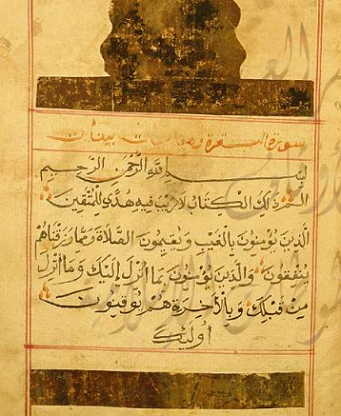 سورة البقرة
بسم الله الرحمن الرحيم
الم ذلك الكتاب لا ريب فيه هدى للمتقين
الذين يؤمنون بالغيب ويقيمون الصلاة ومما رزقناهم
ينفقون والذين يؤمنون بما أنزل إليك وما أنزل
من قبلك وبالآخرة هم يوقنون
أولئك